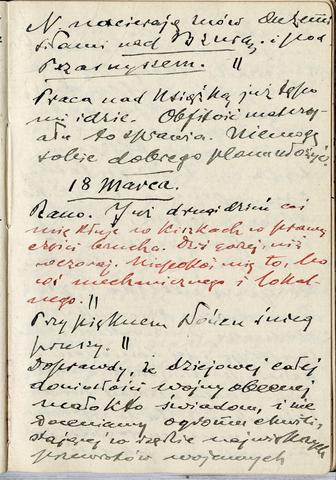 N. nacierają znów dużemi
siłami nad Bzurą i pod
Przasnyszem. ||
Praca nad książką już tępo
mi idzie. Obfitość materya-
łu to sprawia. Niemogę
sobie dobrego planu ułożyć.
18 Marca.
Rano. Już drugi dzień coś
mię kłuje w kiszkach w prawej
części brzucha. Dziś gorzej, niż
wczoraj. Niepokoi mię to, bo
coś mechanicznego i lokal-
nego. ||
Przy pięknem słońcu śnieg
prószy. ||
Doprawdy, że dziejowej całej
doniosłości wojny obecnej
mało kto świadom, i nie
doceniamy ogromu chwili,
stającej w rzędzie największych
przewrotów wojennych